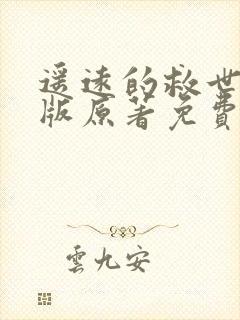 遥远的救世
版原著免費
雲九安